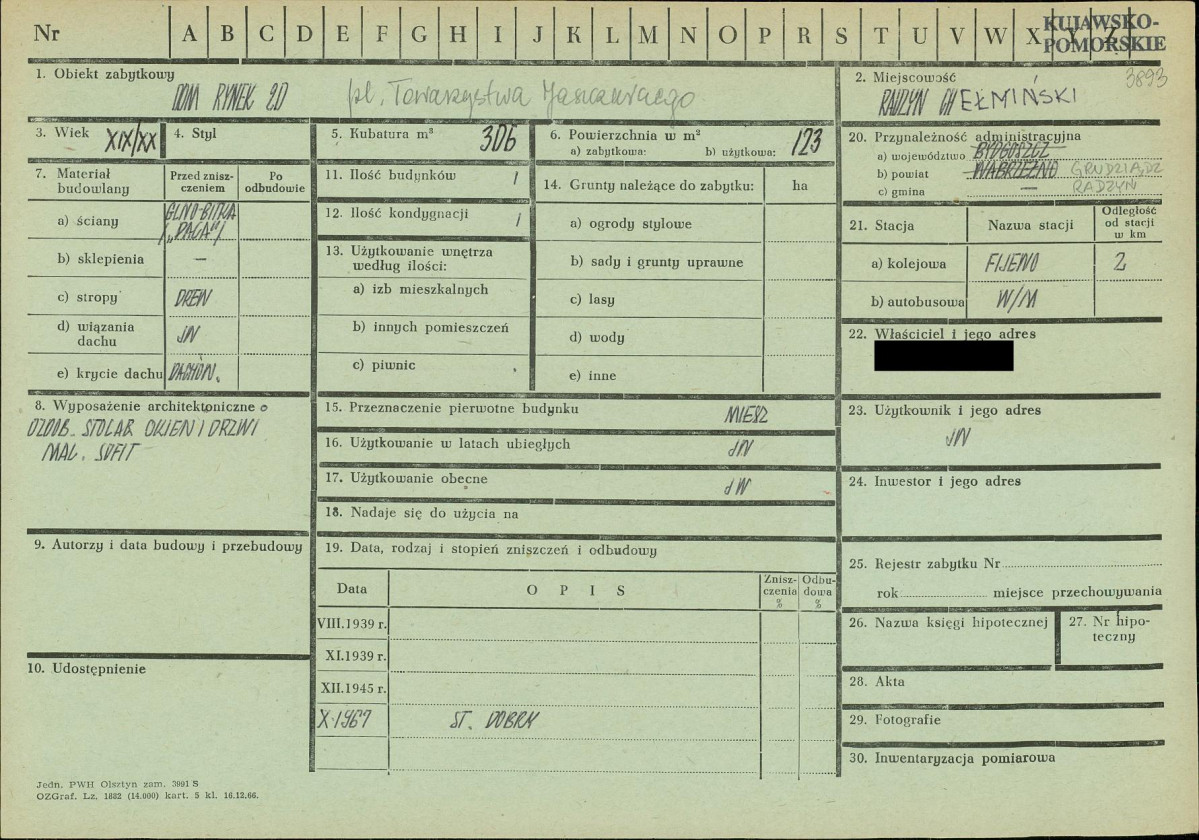 Nr A B C D E F G H I J K L M N O P R S T U V W X Y Z
KUJAWSKO-
POMORSKIE
1. Obiekt zabytkowy
DOM RYNEK 20 pl. Towarzystwa
2. Miejscowość 3893
RADZYN CHEŁMIŃSKI
3. Wiek XIX/XX
4. Styl
5. Kubatura m³ 306
6. Powierzchnia w m²
a) zabytkowa: b) użytkowa: 123
20. Przynależność administracyjna
a) województwo BYDGOSZCZ
b) powiat WĄBRZEŹNO GRUDZIĄDZ
c) gmina — RADZYN
7. Materiał budowlany
Przed znisz-
czeniem
Po
odbudowie
a) ściany GLINO-BITKA
/„PACA"/
b) sklepienia —
c) stropy DREW
d) wiązania
dachu JW
e) krycie dachu DACHÓW.
11. Ilość budynków 1
12. Ilość kondygnacji 1
13. Użytkowanie wnętrza
według ilości:
a) izb mieszkalnych
b) innych pomieszczeń
c) piwnic
14. Grunty należące do zabytku: ha
a) ogrody stylowe
b) sady i grunty uprawne
c) lasy
d) wody
e) inne
21. Stacja Nazwa stacji
Odległość
od stacji
w km
a) kolejowa FIJEWO 2
b) autobusowa W/M
22. Właściciel i jego adres
8. Wyposażenie architektoniczne
OZDOB. STOLAR OKIEN I DRZWI
MAL. SUFIT
15. Przeznaczenie pierwotne budynku MIESZ
16. Użytkowanie w latach ubiegłych JW
17. Użytkowanie obecne JW
18. Nadaje się do użycia na
23. Użytkownik i jego adres
JW
24. Inwestor i jego adres
9. Autorzy i data budowy i przebudowy
10. Udostępnienie
19. Data, rodzaj i stopień zniszczeń i odbudowy
Data OPIS
Znisz-
czenia
%
Odbu-
dowa
%
VIII.1939 r.
XI.1939 r.
XII.1945 r.
X.1967 ST. DOBRY
25. Rejestr zabytku Nr
rok miejsce przechowywania
26. Nazwa księgi hipotecznej
27. Nr hipo-
teczny
28. Akta
29. Fotografie
30. Inwentaryzacja pomiarowa
Jedn. PWH Olsztyn zam. 3991 S
OZGraf. Lz. 1882 (14.000) kart. 5 kl. 16.12.66.